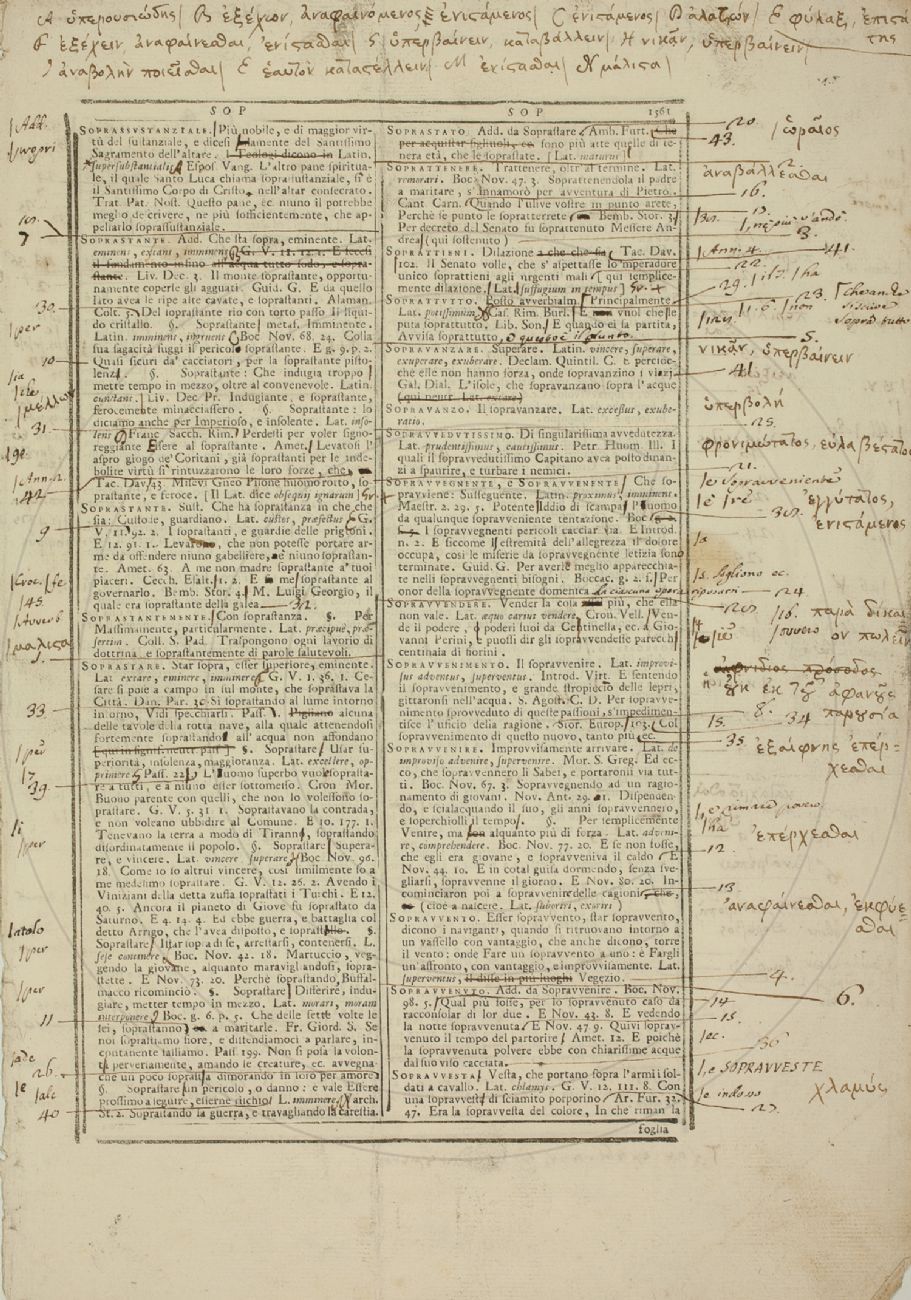 A ὑπερουσιώδης / B ἐξέχων, ἀναφαινόμενος ἐνιστάμενος / C ἐνιστάμενος / D ἀλαζών / E φύλαξ, ἐπιστά
F ἐξέχειν, ἀναφαίνεσθαι, ἐνίστασθαι / G ὑπερβαίνειν, καταβάλλειν / H νικᾶν, ὑπερβαίνειν / της
I ἀναβολὴν ποιεῖσθαι / L ἑαυτὸν καταστέλλειν / M ἐνίστασθαι / N μάλιστα
SOP
SOPRASSUSTANZIALE. Più nobile, e di maggior vir-
tù del sustanziale, e dicesi solamente del Santissimo
Sagramento dell'altare. I Teologi dicono in Latin.
supersubstantialis. Espos. Vang. L'altro pane spiritua-
le, il quale Santo Luca chiama soprasustanziale, si è
il Santissimo Corpo di Cristo nell'altar consecrato.
Trat. Pat. Nost. Questo pane, ec. niuno il potrebbe
meglio descrivere, ne più sofficientemente, che ap-
pellarlo soprassustanziale.
SOPRASTANTE. Add. Che sta sopra, eminente. Lat.
eminens, extans, imminens. G. V. 11. 12. 1. E fecesi
il fondamento infino all'acqua tutto sodo, e sopra-
stante. Liv. Dec. 3. Il monte soprastante, opportu-
namente coperse gli agguati. Guid. G. E da quello
lato avea le ripe alte cavate, e soprastanti. Alaman.
Colt. 5. Del soprastante rio con torto passo Il liqui-
do cristallo. §. Soprastante metaf. Imminente.
Latin. imminens, ingruens. Boc. Nov. 68. 24. Colla
sua sagacità fuggì il pericol soprastante. E g. 9. p. 2.
Quasi sicuri da' cacciatori, per la soprastante pisto-
lenza. §. Soprastante: Che indugia troppo
mette tempo in mezzo, oltre al convenevole. Latin.
cunctans. Liv. Dec. Pr. Indugiante, e soprastante,
ferocemente minacciassero. §. Soprastante: lo
diciamo anche per Imperioso, e insolente. Lat. inso-
lens. Franc. Sacch. Rim. Perdesti per voler signo-
reggiante Essere al soprastante. Amet. Levatosi l'
aspro giogo de' Coritani, già soprastanti per le inde-
bolite virtù si rintuzzarono le loro forze, che
Tac. Dav. 43. Misevi Gneo Pisone huomo rotto, so-
prastante, e feroce. [Il Lat. dice obsequij ignarum]
SOPRASTANTE. Sust. Che ha soprastanza in che che
sia: Custode, guardiano. Lat. custos, præfectus. G.
V. 11. 92. 2. I soprastanti, e guardie delle prigioni.
E 12. 91. 1. Levarono, che non potesse portare ar-
me da offendere niuno gabelliere, nè niuno soprastan-
te. Amet. 63. A me non madre soprastante a' tuoi
piaceri. Cecch. Esalt. 1. 2. E me soprastante al
governarlo. Bemb. Stor. 4. M. Luigi Georgio, il
quale era soprastante della galea 32.
SOPRASTANTEMENTE. Con soprastanza. §. Per
Massimamente, particularmente. Lat. præcipuè, præ-
sertim. Coll. S. Pad. Traspongono ogni lavorio di
dottrina e soprastantemente di parole salutevoli.
SOPRASTARE. Star sopra, esser superiore, eminente.
Lat. extare, eminere, imminere. G. V. 1. 36. 1. Ce-
sare si pose a campo in sul monte, che soprastava la
Città. Dan. Par. 30. Sì soprastando al lume intorno
intorno, Vidi specchiarsi. Pass. Pigliano alcuna
delle tavole della rotta nave, alla quale attenendosi
fortemente soprastando all'acqua non affondano
[qui in signif. neutr. pass.] §. Soprastare: Usar su-
periorità, insolenza, maggioranza. Lat. excellere, op-
primere. Pass. 22. L'huomo superbo vuole soprasta-
re a tutti, e a niuno esser sottomesso. Cron. Mor.
Buono parente con quelli, che non lo volessono so-
prastare. G. V. 5. 31. 1. Soprastavano la contrada,
e non voleano ubbidire al Comune. E 10. 177. 1.
Tenevano la terra a modo di Tiranni, soprastando
disordinatamente il popolo. §. Soprastare: Supera-
re, e vincere. Lat. vincere superare. Boc. Nov. 96.
18. Come io so altrui vincere, così similmente so a
me medesimo soprastare. G. V. 12. 26. 2. Avendo i
Viniziani della detta zuffa soprastati i Turchi. E 12.
40. 5. Ancora il pianeto di Giove fu soprastato da
Saturno. E 4. 14. 4. Ed ebbe guerra, e battaglia col
detto Arrigo, che l'avea disposto, e soprastallo. §.
Soprastare: Istar sopra di se, arrestarsi, contenersi. L.
sese continere. Boc. Nov. 42. 18. Martuccio, veg-
gendo la giovane, alquanto maravigliandosi, sopra-
stette. E Nov. 73. 20. Perchè soprastando, Buffal-
macco ricominciò. §. Soprastare: Differire, indu-
giare, metter tempo in mezzo. Lat. morari, moram
interponere. Boc. g. 6. p. 5. Che delle sette volte le
sei, soprastanno a maritarle. Fr. Giord. S. Se
noi soprastiamo fiore, e distendiamoci a parlare, in-
contanente falliamo. Pass. 199. Non si posa la volon-
tà perversamente, amando le creature, ec. avvegna-
che un poco soprastia dimorando in loro per amore.
§. Soprastare un pericolo, o danno: e vale Essere
prossimo a seguire, esserne rischio. L. imminere. Varch.
St. 2. Soprastando la guerra, e travagliando la carestia.
SOP 1561
SOPRASTATO. Add. da Soprastare. Amb. Furt. Che
per acquistar figliuoli, ec. sono più atte quelle di te-
nera età, che le soprastate. [Lat. maturus]
SOPRATTENERE. Trattenere, oltr'al termine. Lat.
remorari. Boc. Nov. 47. 3. Soprattenendola il padre
a maritare, s'innamorò per avventura di Pietro.
Cant. Carn. Quando l'ulive vostre in punto arete,
Perchè se punto le sopratterrete. Bemb. Stor. 3.
Per decreto del Senato fu soprattenuto Messere An-
drea (qui sostenuto)
SOPRATTIENI. Dilazione a che che sia. Tac. Dav.
102. Il Senato volle, che s'aspettasse lo imperadore
unico soprattieni agli urgenti mali [qui semplice-
mente dilazione. Lat. suffugium in tempus]
SOPRATTUTTO. Posto avverbialm. Principalmente
Lat. potissimùm. Caf. Rim. Burl. E non vuol che se
puta soprattutto. Lib. Son. E quando ei fa partita,
Avvisa soprattutto
SOPRAVANZARE. Superare. Latin. vincere, superare,
exuperare, exuberare. Declam. Quintil. C. E perciò-
che elle non hanno forza, onde sopravanzino i vizzi.
Gal. Dial. L'isole, che sopravanzano sopra l'acque
(qui neutr. Lat. extare)
SOPRAVANZO. Il sopravanzare. Lat. excessus, exube-
ratio.
SOPRAVVEDUTISSIMO. Di singularissima avvedutezza.
Lat. prudentissimus, cautissimus. Petr. Huom. Ill. I
quali il sopravvedutissimo Capitano avea posto dinan-
zi a spaurire, e turbare i nemici.
SOPRAVVEGNENTE, e SOPRAVVENENTE. Che so-
pravviene: Susseguente. Latin. proximus, imminens.
Maestr. 2. 29. 5. Potente Iddio di scampar l'huomo
da qualunque sopravveniente tentazione. Boc.
I sopravvegnenti pericoli cacciar via. E Introd.
n. 2. E siccome l'estremità dell'allegrezza il dolore
occupa, così le miserie da sopravvegnente letizia sono
terminate. Guid. G. Per averle meglio apparecchia-
te nelli sopravvegnenti bisogni. Boccac. g. 2. f. Per
onor della sopravvegnente domenica
SOPRAVVENDERE. Vender la cosa più, che ella
non vale. Lat. æquo carius vendere. Cron. Vell. Ven-
de il podere, i poderi suoi da Centinella, ec. a Gio-
vanni Perini, e puossi dir gli sopravvendesse parecchi
centinaia di fiorini.
SOPRAVVENIMENTO. Il sopravvenire. Lat. improvi-
sus adventus, superventus. Introd. Virt. E sentendo
il sopravvenimento, e grande stropiccio delle lepri,
gittaronsi nell'acqua. S. Agost. C. D. Per sopravve-
nimento sprovveduto di queste passioni, s'impedimen-
tisce l'uficio della ragione. Stor. Europ. 103. Col
sopravvenimento di questo nuovo, tanto più, ec.
SOPRAVVENIRE. Improvvisamente arrivare. Lat. de
improviso advenire, supervenire. Mor. S. Greg. Ed ec-
co, che sopravvennero li Sabei, e portaronli via tut-
ti. Boc. Nov. 67. 3. Sopravvegnendo ad un ragio-
namento di giovani. Nov. Ant. 29. 1. Dispenden-
do, e scialacquando il suo, gli anni sopravvennero,
e soperchiolli il tempo. §. Per semplicemente
Venire, ma con alquanto più di forza. Lat. adveni-
re, comprehendere. Boc. Nov. 77. 20. E se non fosse,
che egli era giovane, e sopravveniva il caldo. E
Nov. 44. 10. E in cotal guisa dormendo, senza sve-
gliarsi, sopravvenne il giorno. E Nov. 80. 20. In-
cominciaron poi a sopravvenir delle cagioni che,
(cioè a nascere. Lat. suboriri, exoriri)
SOPRAVVENTO. Esser sopravvento, star sopravvento,
dicono i naviganti, quando si ritruovano intorno a
un vassello con vantaggio, che anche dicono, torre
il vento: onde Fare un sopravvento a uno: è Fargli
un'affronto, con vantaggio, e improvvisamente. Lat.
superventus, il disse in più luoghi Vegezio.
SOPRAVVENUTO. Add. da Sopravvenire. Boc. Nov.
98. 5. Qual più fosse, per lo sopravvenuto caso da
racconsolar di lor due. E Nov. 43. 8. E vedendo
la notte sopravvenuta. E Nov. 47. 9. Quivi soprav-
venuto il tempo del partorire. Amet. 12. E poichè
la sopravvenuta polvere ebbe con chiarissime acque
dal suo viso cacciata.
SOPRAVVESTA. Vesta, che portano sopra l'armi i sol-
dati a cavallo. Lat. chlamys. G. V. 12. 111. 8. Con
una sopravvesta di sciamito porporino. Ar. Fur. 32.
47. Era la sopravvesta del colore, In che riman la
foglia
ὡραῖος
ἀναβάλλεσθαι
νικᾶν, ὑπερβαίνειν
ὑπερβολή
φρονιμώτατος, εὐλαβέστατος
ἐγγύτατος,
ἐνιστάμενος
παρὰ δίκαι
ον πωλεῖν
παρουσία
ἐξαίφνης ἐπέρ-
χεσθαι
ἐπέρχεσθαι
ἀναφαίνεσθαι, ἐκφύε-
σθαι
e SOPRAVVESTE
χλαμύς